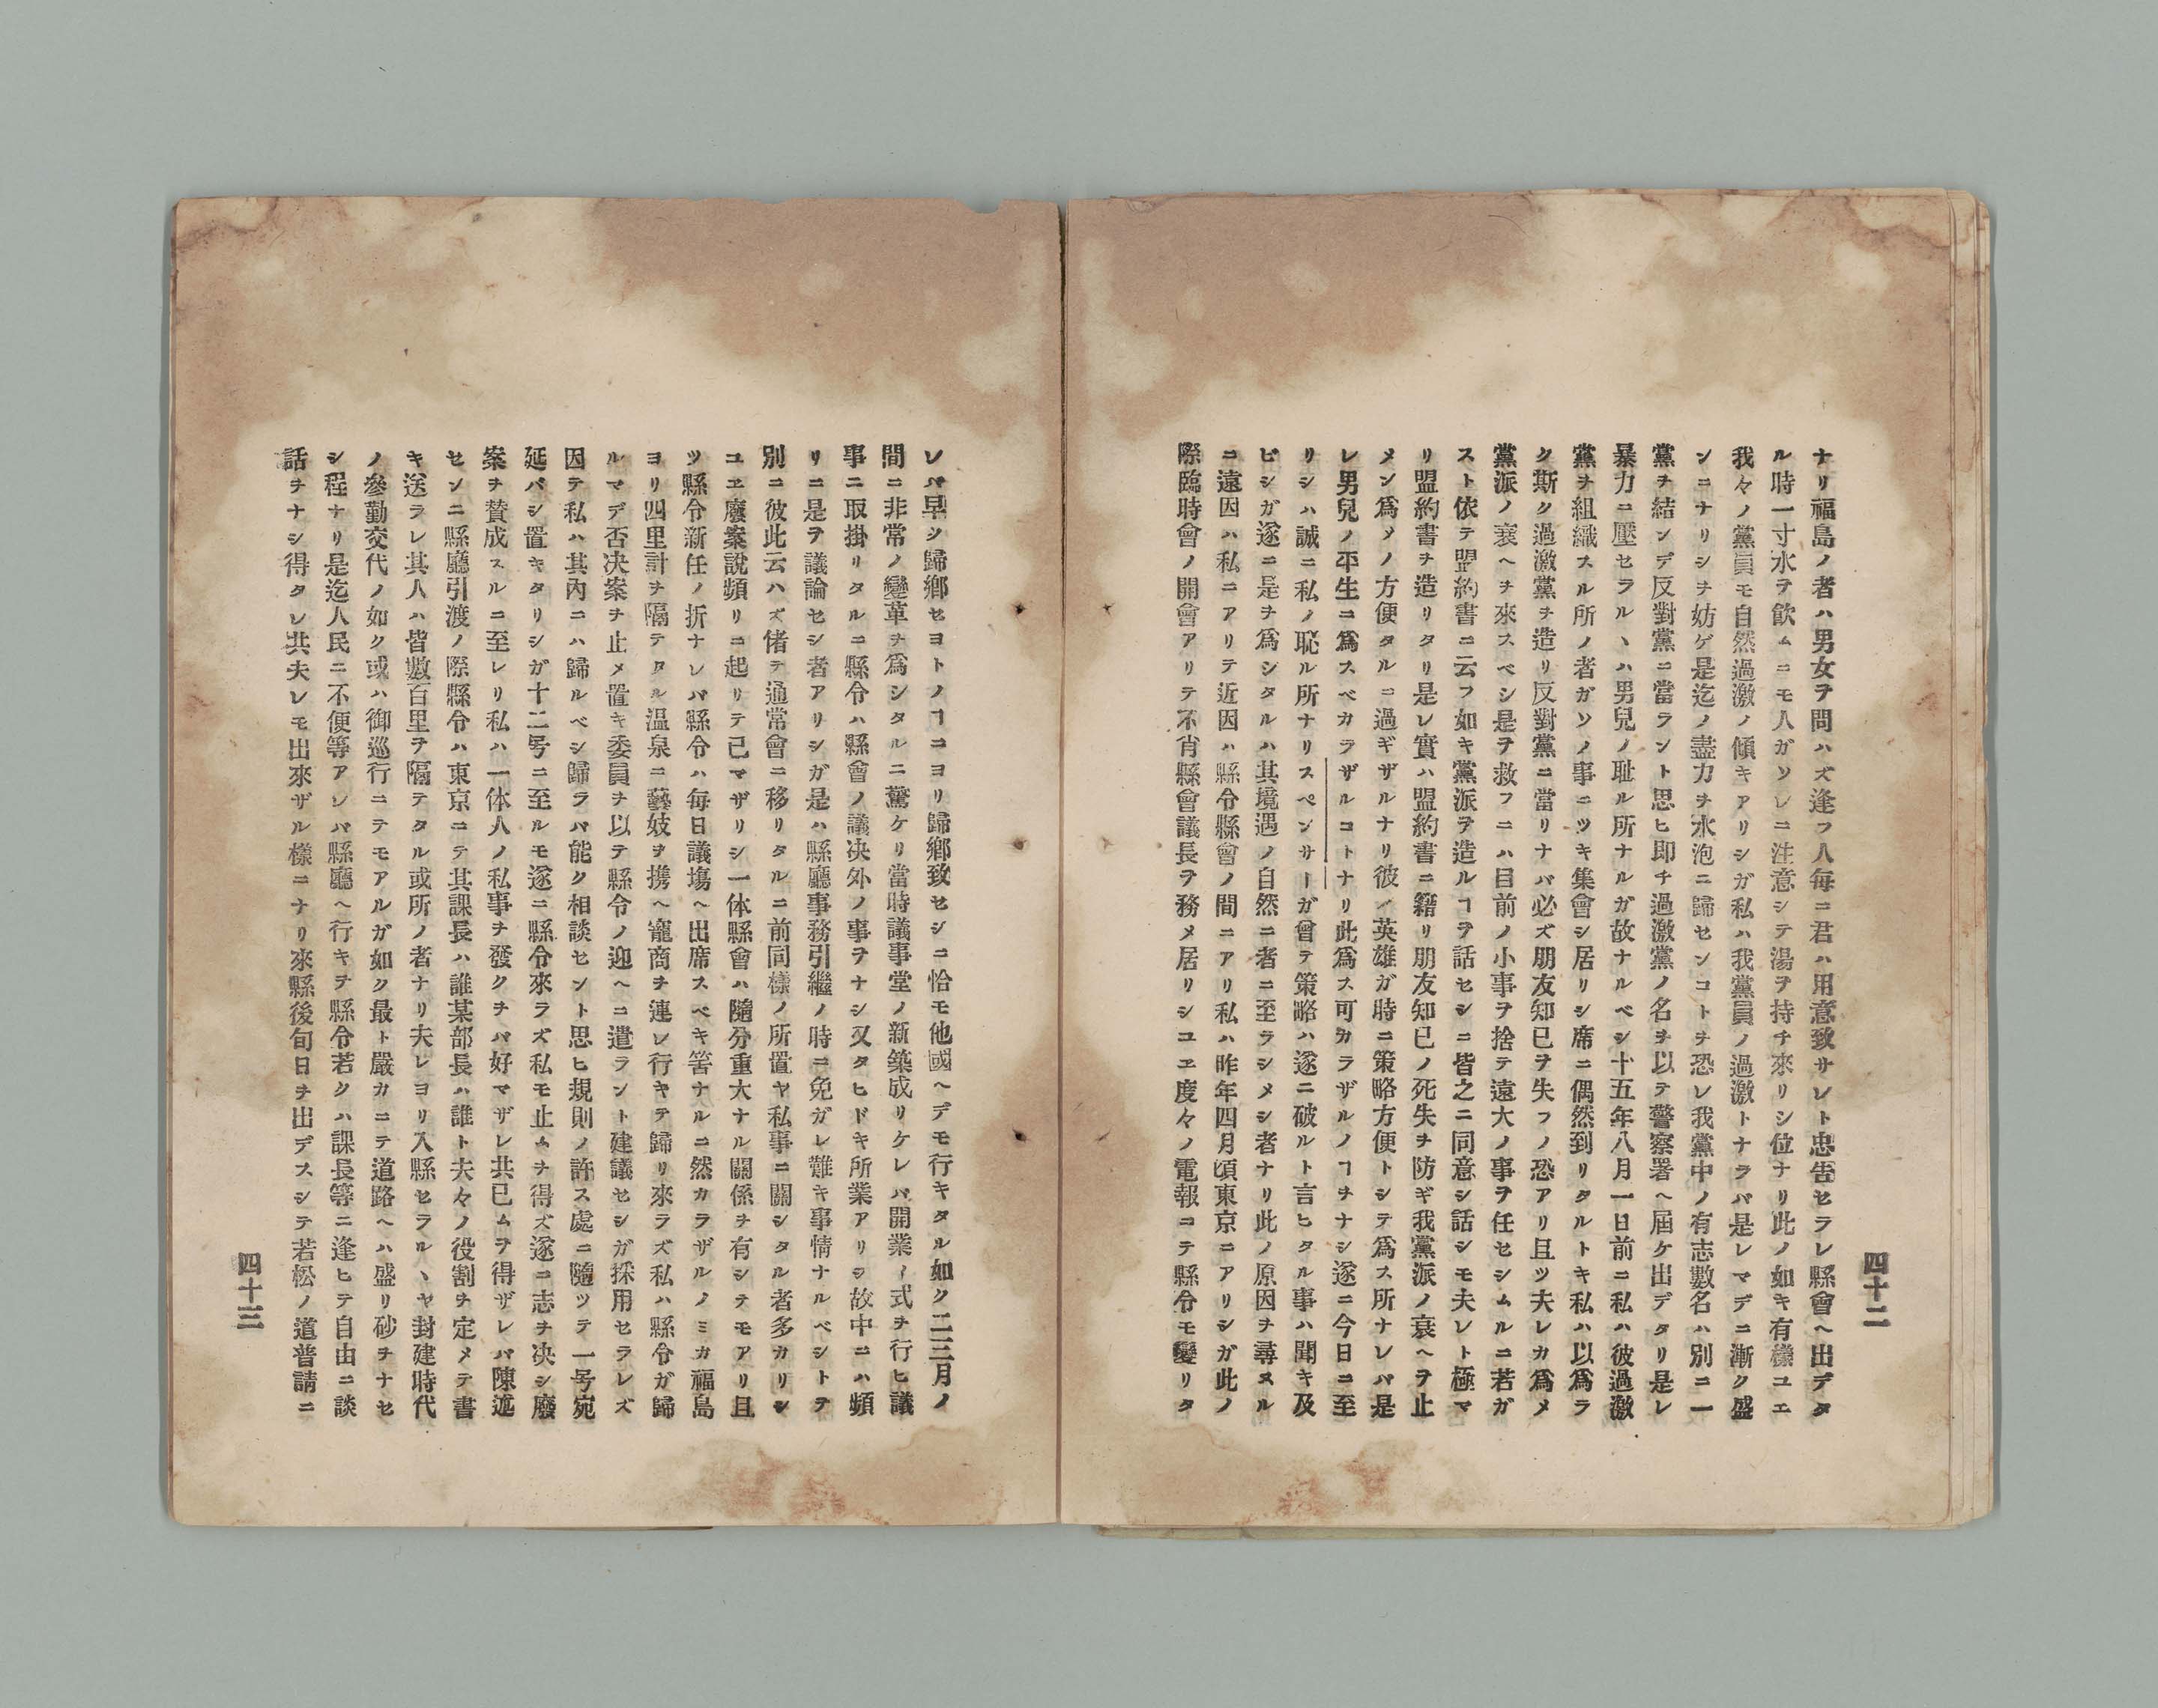 四十二
ナリ福島ノ者ハ男女ヲ問ハズ逢フ人毎ニ君ハ用意致サレト忠告セラレ縣會ヘ出デタ
ル時一寸水ヲ飮ムニモ人ガソレニ注意シテ湯ヲ持チ來リシ位ナリ此ノ如キ有樣ユエ
我々ノ黨員モ自然過激ノ傾キアリシガ私ハ我黨員ノ過激トナラバ是レマデニ漸ク盛
ンニナリシヲ妨ゲ是迄ノ盡力ヲ水泡ニ歸センコトヲ恐レ我黨中ノ有志數名ハ別ニ一
黨ヲ結ンデ反對黨ニ當ラント思ヒ即チ過激黨ノ名ヲ以テ警察署ヘ屆ケ出デタリ是レ
暴力ニ壓セラルヽハ男兒ノ耻ル所ナルガ故ナルベシ十五年八月一日前ニ私ハ彼過激
黨ヲ組織スル所ノ者ガソノ事ニツキ集會シ居リシ席ニ偶然到リタルトキ私ハ以爲ラ
ク斯ク過激黨ヲ造リ反對黨ニ當リナバ必ズ朋友知已ヲ失フノ恐アリ且ツ夫レカ爲メ
黨派ノ衰ヘヲ來スベシ是ヲ救フニハ目前ノ小事ヲ捨テ遠大ノ事ヲ任セシムルニ若ガ
スト依テ盟約書ニ云フ如キ黨派ヲ造ルヿヲ話セシニ皆之ニ同意シ話シモ夫レト極マ
リ盟約書ヲ造リタリ是レ實ハ盟約書ニ籍リ朋友知已ノ死失ヲ防ギ我黨派ノ衰ヘヲ止
メン爲メノ方便タルニ過ギザルナリ彼ノ英雄ガ時ニ策略方便トシテ爲ス所ナレバ是
レ男兒ノ平生ニ爲スベカラザルコトナリ此爲ス可カラザルノヿヲナシ遂ニ今日ニ至
リシハ誠ニ私ノ恥ル所ナリスペンサーガ曾テ策略ハ遂ニ破ルト言ヒタル事ハ聞キ及
ビシガ遂ニ是ヲ爲シタルハ其境遇ノ自然ニ者ニ至ラシメシ者ナリ此ノ原因ヲ尋ヌル
ニ遠因ハ私ニアリテ近因ハ縣令縣會ノ間ニアリ私ハ昨年四月頃東京ニアリシガ此ノ
際臨時會ノ開會アリテ不肖縣會議長ヲ務メ居リシユエ度々ノ電報ニテ縣令モ變リタ
レバ早ク歸鄕セヨトノヿニヨリ歸鄕致セシニ恰モ他國ヘデモ行キタル如ク二三月ノ
間ニ非常ノ變革ヲ爲シタルニ驚ケリ當時議事堂ノ新築成リケレバ開業ノ式ヲ行ヒ議
事ニ取掛リタルニ縣令ハ縣會ノ議决外ノ事ヲナシ又タヒドキ所業アリシ故中ニハ頻
リニ是ヲ議論セシ者アリシガ是ハ縣廳事務引繼ノ時ニ免ガレ難キ事情ナルベシトテ
別ニ彼此云ハズ偖テ通常會ニ移リタルニ前同樣ノ所置ヤ私事ニ關シタル者多カリシ
ユヱ廢案說頻リニ起リテ已マザリシ一体縣會ハ隨分重大ナル關係ヲ有シテモアリ且
ツ縣令新任ノ折ナレバ縣令ハ每日議塲ヘ出席スベキ筈ナルニ然カラザルノミカ福島
ヨリ四里計ヲ隔テタル温泉ニ藝妓ヲ携ヘ寵商ヲ連レ行キテ歸リ來ラズ私ハ縣令ガ歸
ルマデ否决案ヲ止メ置キ委員ヲ以テ縣令ノ迎ヘニ遣ラント建議セシガ採用セラレズ
因テ私ハ其內ニハ歸ルベシ歸ラバ能ク相談セント思ヒ規則ノ許ス處ニ隨ツテ一号宛
延バシ置キタリシガ十二号ニ至ルモ遂ニ縣令來ラズ私モ止ムヲ得ズ遂ニ志ヲ决シ廢
案ヲ賛成スルニ至レリ私ハ一体人ノ私事ヲ發クヲバ好マザレ共已ムヲ得ザレバ陳述
センニ縣廳引渡ノ際縣令ハ東京ニテ其課長ハ誰某部長ハ誰ト夫々ノ役割ヲ定メテ書
キ送ラレ其人ハ皆數百里ヲ隔テタル或所ノ者ナリ夫レヨリ入縣セラルヽヤ封建時代
ノ參勤交代ノ如ク或ハ御巡行ニテモアルガ如ク最ト嚴カニテ道路ヘハ盛リ砂ヲナセ
シ程ナリ是迄人民ニ不便等アレバ縣廳ヘ行キヲ縣令若クハ課長等ニ逢ヒテ自由ニ談
話ヲナシ得タレ共夫レモ出來ザル樣ニナリ來縣後旬日ヲ出デスシテ若松ノ道普請ニ
四十三